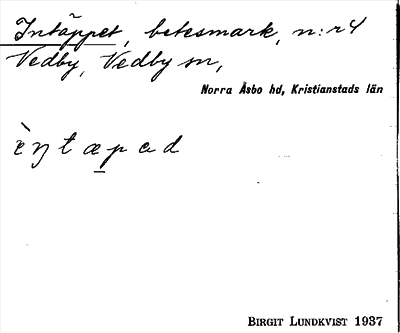 Intäppet, betesmark, n:r 4
Vedby, Vedby sn,
Norra Åsbo hd, Kristianstads län
ὲŋtæpad
BIRGIT LUNDKVIST 1937